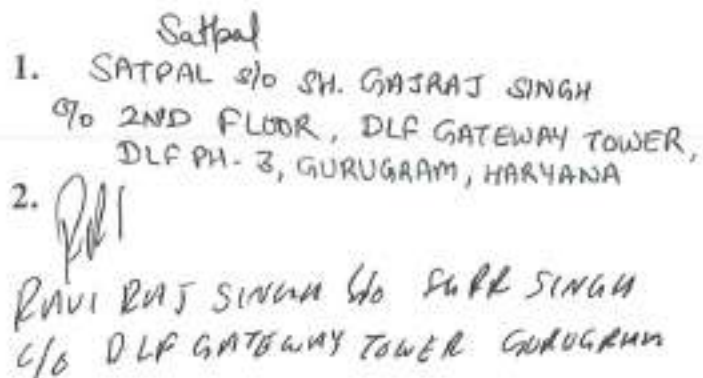 Satpal
1. SATPAL S/o SH. GAJRAJ SINGH
C/o 2ND FLOOR, DLF GATEWAY TOWER,
DLF PH-3, GURUGRAM, HARYANA
2.
RAVI RAJ SINGH S/o SINGH
C/o DLF GATEWAY TOWER GURUGRAM